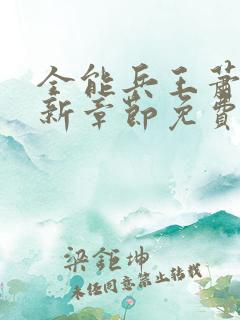 全能兵王萧
新章节免费
梁钜坤
未经同意禁止转载